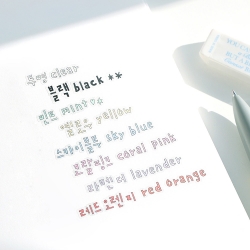 투명 clear
블랙 black **
민트 mint
옐로우 yellow
스카이블루 sky blue
코랄핑크 coral pink
라벤더 lavender
레드오렌지 red orange